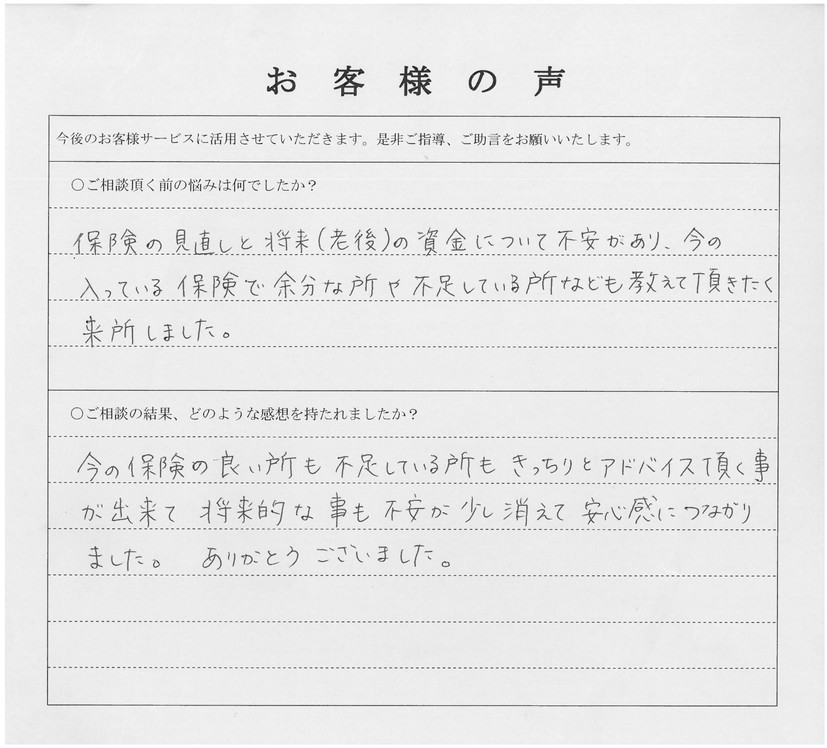 お客様の声
今後のお客様サービスに活用させていただきます。是非ご指導、ご助言をお願いいたします。
○ご相談頂く前の悩みは何でしたか？
保険の見直しと将来(老後)の資金について不安があり、今の
入っている保険で余分な所や不足している所なども教えて頂きたく
来所しました。
○ご相談の結果、どのような感想を持たれましたか？
今の保険の良い所も不足している所もきっちりとアドバイス頂く事
が出来て 将来的な事も不安が少し消えて安心感につながり
ました。 ありがとうございました。